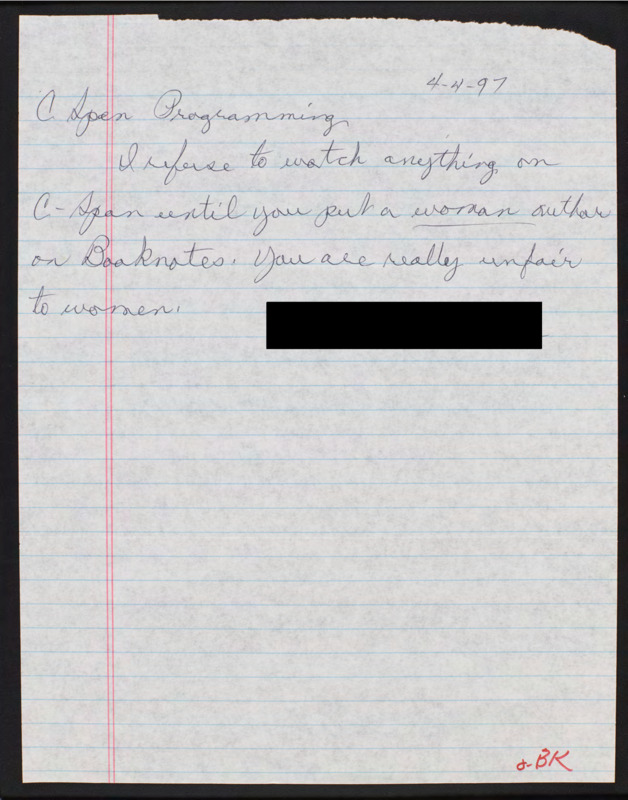 4-4-97
C Span Programming
I refuse to watch anything on
C-Span until you put a woman author
on Booknotes. You are really unfair
to women.
BK